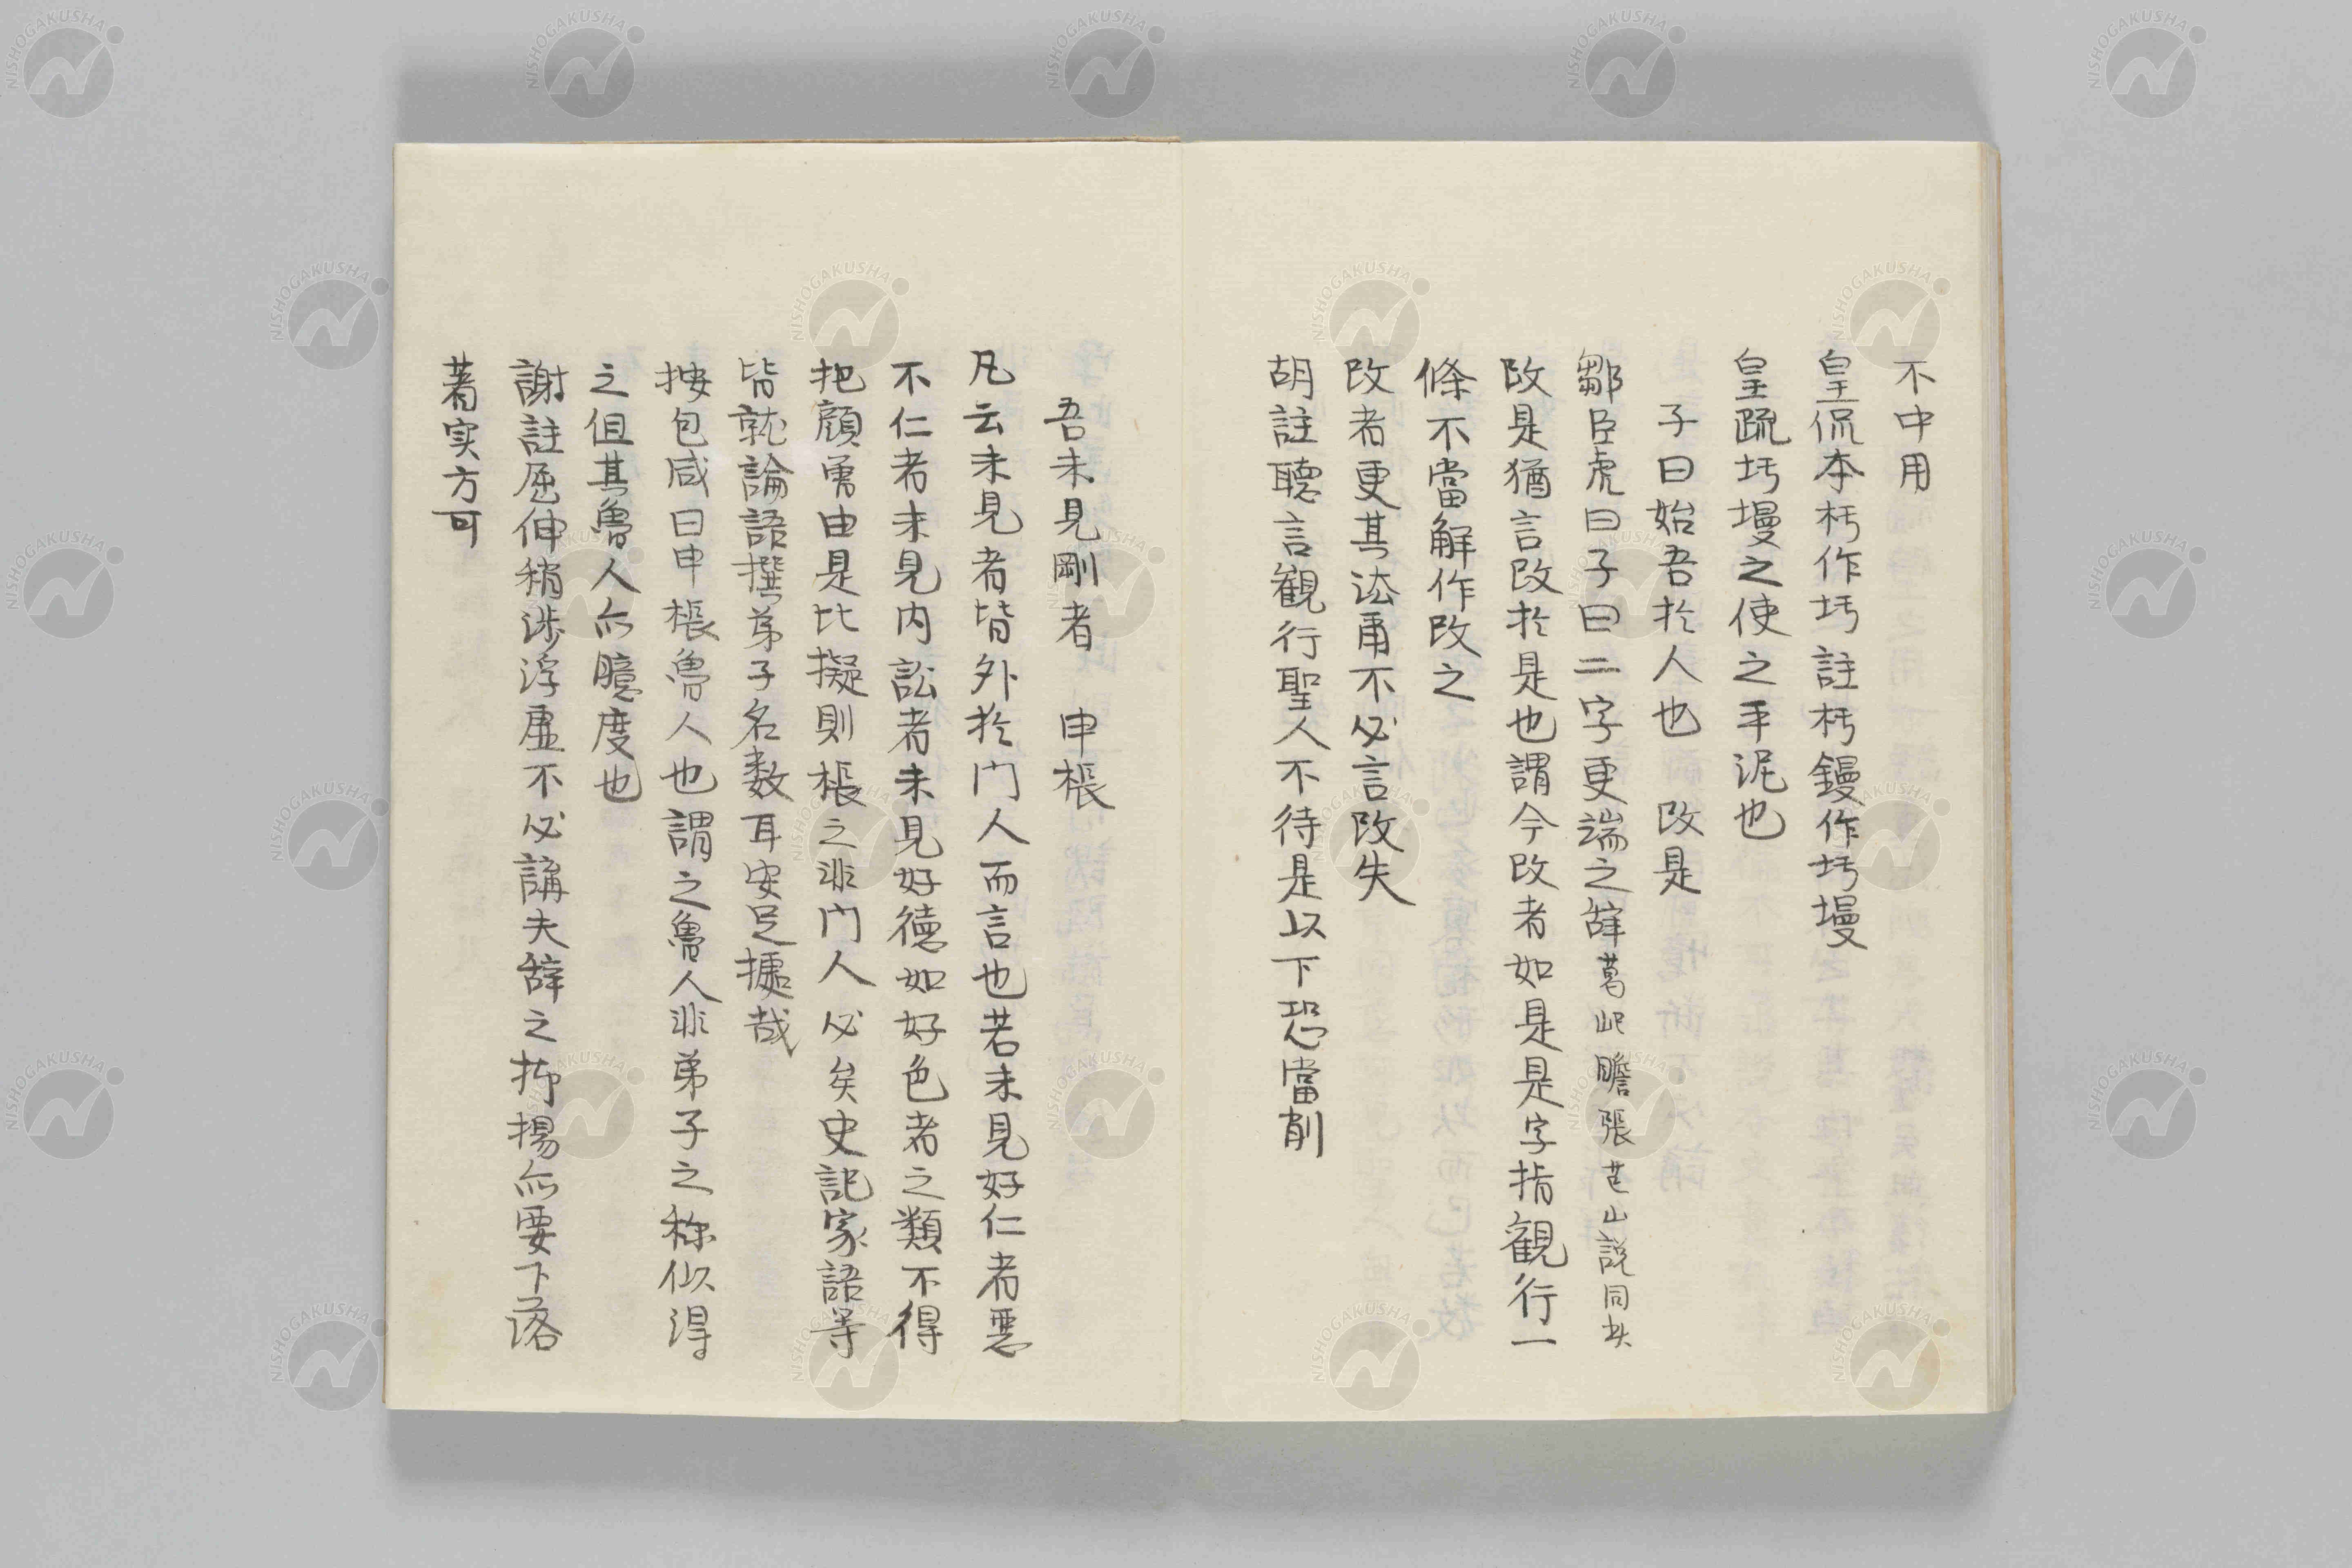 不中用
皇侃本杇作圬註杇鏝作圬墁
皇疏圬墁之使之平泥也
子曰始吾於人也　改是
鄒臣虎曰子曰二字更端之辞葛屺瞻張芑山説同失
改是猶言改於是也謂今改者如是是字指観行一
條不當解作改之
改者更其法甫不必言改失
胡註聴言観行聖人不待是以下恐當削
吾未見剛者　申棖
凡云未見者皆外於門人而言也若未見好仁者悪
不仁者未見内訟者未見好徳如好色者之類不得
把顔勇由是比擬則棖之非門人必矣史記家語等
皆就論語撰弟子名数耳安足據哉
按包咸曰申棖魯人也謂之魯人非弟子之称似得
之但其魯人亦臆度也
謝註屈伸稍渉浮虚不必講夫辞之抑揚亦要下落
著実方可
NISHOGAKUSHA